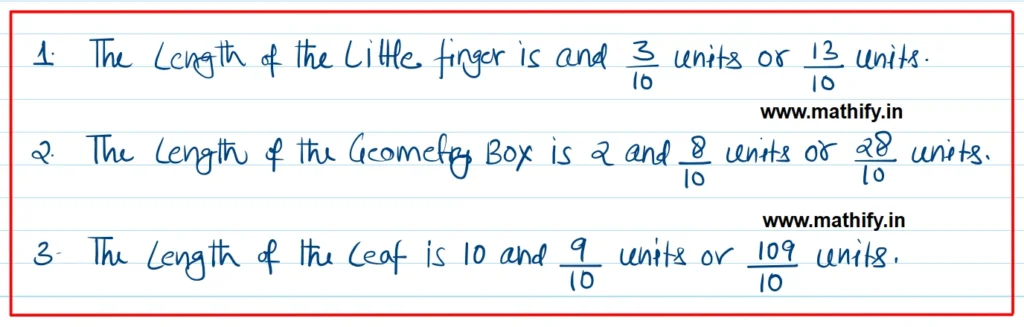 1. The Length of the Little finger is and 3/10 units or 13/10 units.
www.mathify.in
2. The Length of the Geometry Box is 2 and 8/10 units or 28/10 units.
www.mathify.in
3- The Length of the Leaf is 10 and 9/10 units or 109/10 units.